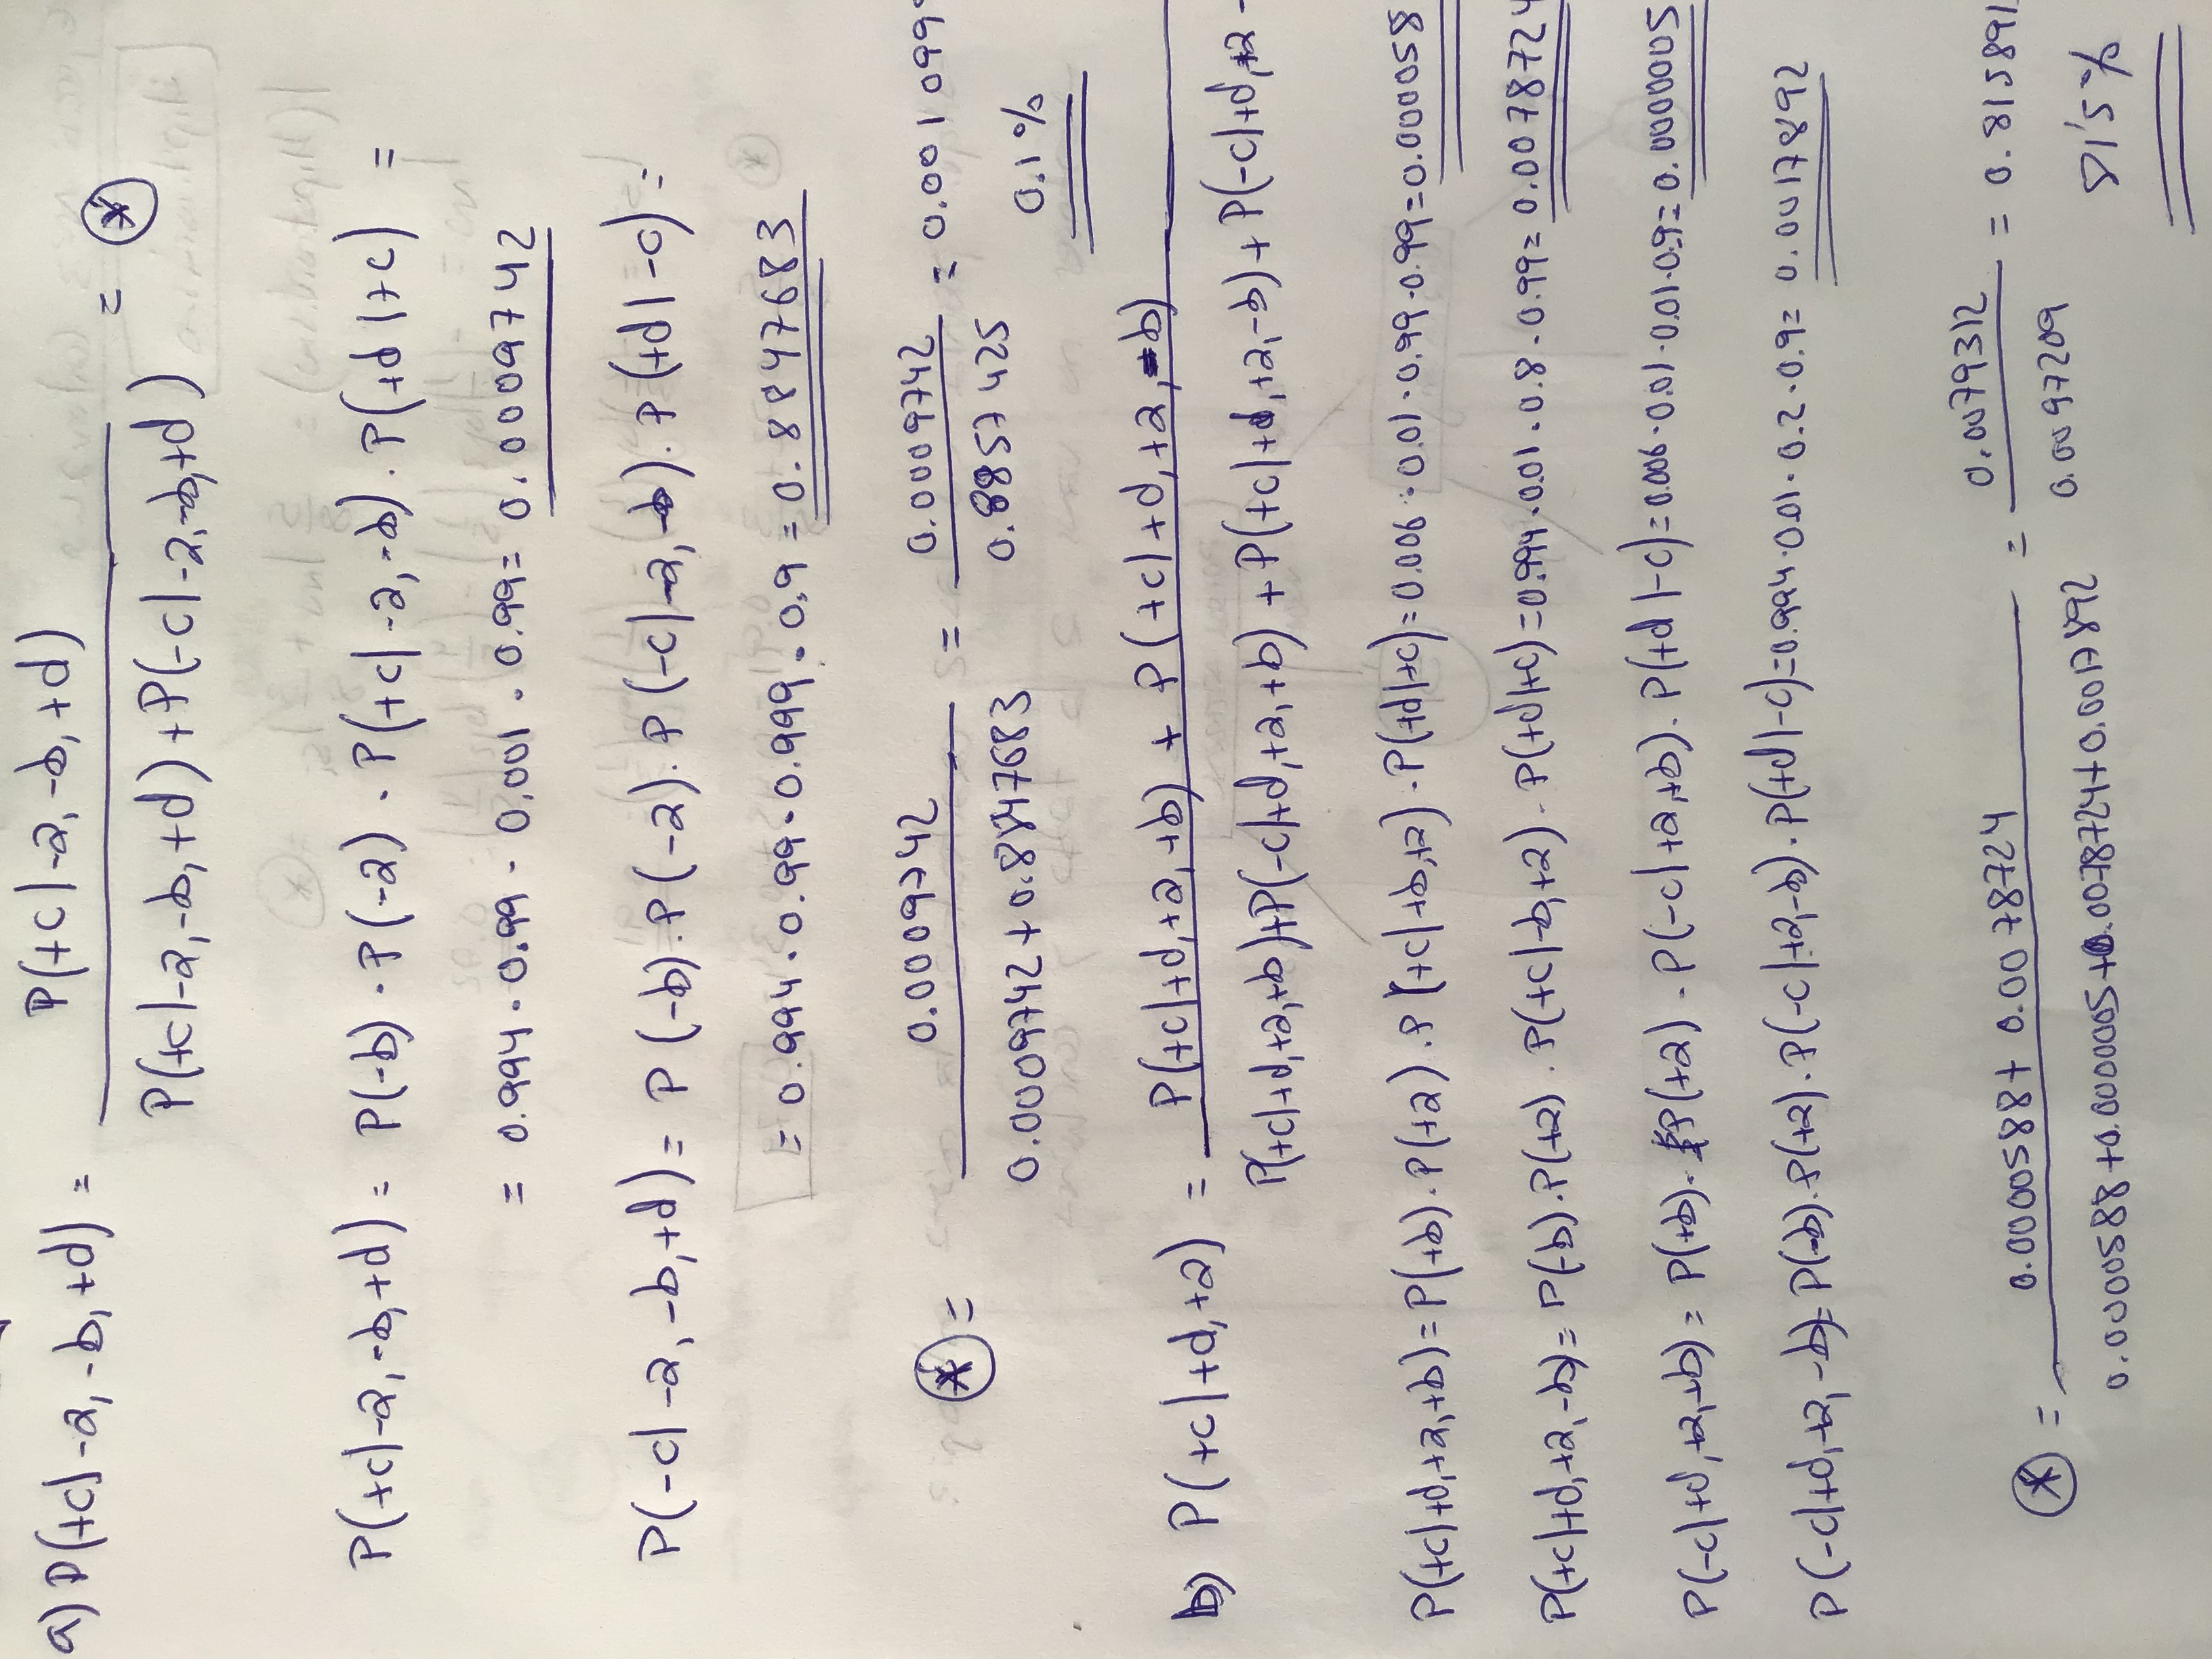 a) P(+c|-a,-b,+d) = P(+c|-a,-b,+d)
P(+c|-a,-b,+d) + P(-c|-a,-b,+d) = *
P(+c|-a,-b,+d) = P(-b)·P(-a)·P(+c|-a,-b)·P(+d|+c) =
= 0.994·0.99·0.001·0.99 = 0.0009742
P(-c|-a,-b,+d) = P(-b)·P(-a)·P(-c|-a,-b)·P(+d|-c) =
= 0.994·0.99·0.999·0.9 = 0.8847683
* = 0.0009742 = 0.0009742 = 0.001099
0.0009742 + 0.8847683 0.8857425 0.1%
b) P(+c|+d,+a) = P(+c|+d,+a,+b) + P(+c|+d,+a,-b)
P(+c|+d,+a,+b)+P(-c|+d,+a,+b) + P(+c|+d,+a,-b) + P(-c|+d,+a -
P(+c|+d,+a,+b) = P(+b)·P(+a)·P(+c|+b,+a)·P(+d|+c) = 0.006·0.01·0.99·0.99 = 0.000058
P(+c|+d,+a,-b) = P(-b)·P(+a)·P(+c|-b,+a)·P(+d|+c) = 0.994·0.01·0.8·0.99 = 0.0078724
P(-c|+d,+a,+b) = P(+b)·P(+a)·P(-c|+a,+b)·P(+d|-c) = 0.006·0.01·0.01·0.9 = 0.0000005
P(-c|+d,+a,-b) = P(-b)·P(+a)·P(-c|+a,-b)·P(+d|-c) = 0.994·0.01·0.2·0.9 = 0.0017892
* = 0.0000588 + 0.0078724 = 0.0079312 = 0.815891
0.0000588 + 0.0000005 + 0.0078724 + 0.0017892 0.0097209 81'5%